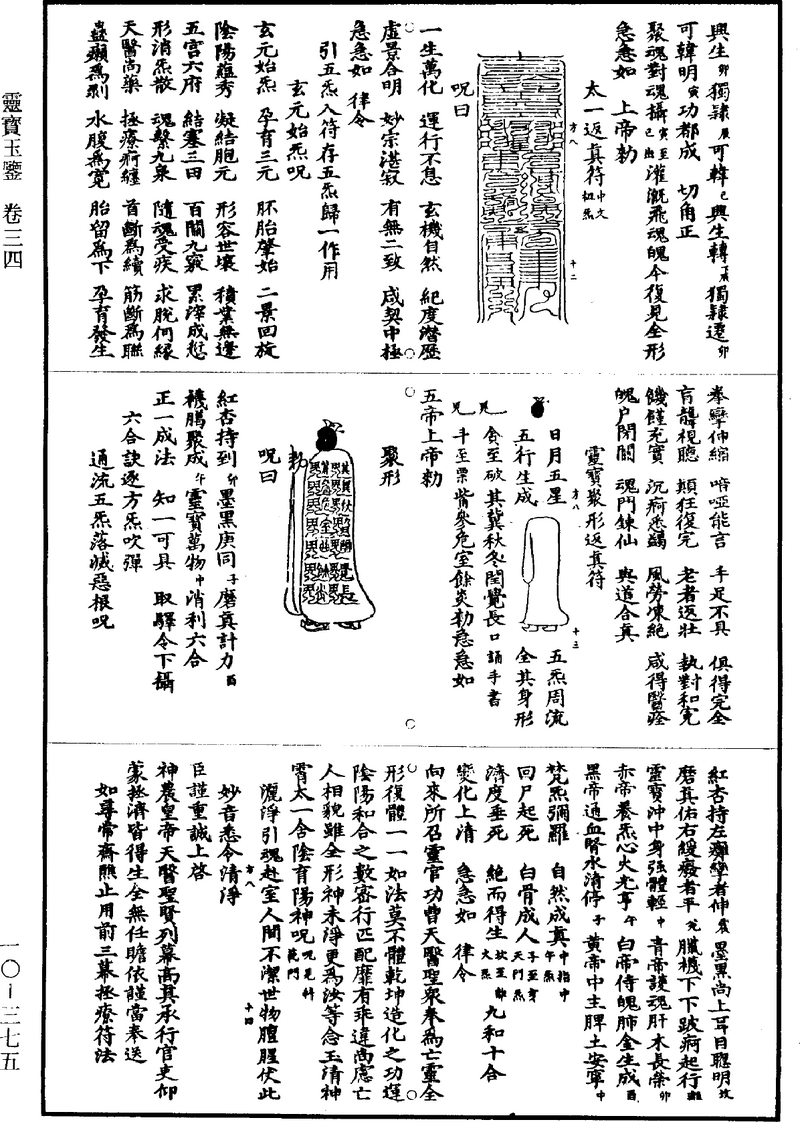 靈寶玉鑒 卷三四
興生卯獨隸辰可韓巳興生轉獨隸還卯
可韓明寅功都成 切角正
聚魂對魂攝灌溉飛魂魄今復見全形
急急如 上帝勑
太一返真符
方八
十二
呪曰
一生萬化 運行不息 玄機自然 紀度潛歷
虛景合明 妙宗湛寂 有無二致 咸契中極
急急如 律令
引五炁入符存五炁歸一作用
玄元始炁呪
玄元始炁 孕育三元 胚胎肇始 二景回旋
陰陽蘊秀 凝結胞元 形容世壞 積業無邊
五宮六府 結塞三田 百關九竅 累滓成愆
形消炁散 魂繫九泉 隨魂受疾 求脫何緣
天醫尚藥 拯療痾纏 首斷為續 筋斷為聯
蠱癩為剝 水腹為寬 胎留為下 孕育發生
拳攣伸縮 喑啞能言 手足不具 俱得完全
盲聾視聽 顛狂復完 老者返壯 執對和寬
饑饉充實 沉痾悉蠲 風勞凍絕 咸得醫痊
魄戶閉關 魂門鍊仙 與道合真
靈寶聚形返真符
方八
十三
日月五星 五炁周流
五行生成 全其身形
食至破其冀秋冬閏覺長口誦手書
斗至票觜參危室餘炎勑急急如
五帝上帝勑
聚形
勑
呪曰
紅杏持到午墨黑庚同子磨真計力酉
襪腸聚成午靈寶萬物中消利六合
正一成法 知一可具 取驛令下攝
六合訣逐方炁吹彈
通流五炁落滅惡根呪
紅杏持左癱攣者伸辰墨黑尚上耳目聰明
磨真佑右緩癈者平臟襪下下跛痾起行
靈寶沖中身強體輕中青帝護魂肝木長榮卯
赤帝養炁心火光亨午白帝侍魄肺金生成酉
黑帝通血腎水清停子黃帝中主脾土安寧中
梵炁彌羅 自然成真
回尸起死 白骨成人
濟度垂死 絕而得生 九和十合
變化上清 急急如 律令
向來所召靈官功曹天醫聖眾奉為亡靈全
形復體一一如法莫不體乾坤造化之功運
陰陽和合之數審行匹配靡有乖違尚慮亡
人相貌雖全形神未淨更為汝等念玉清神
霄太一含陰育陽神呪
灑淨引魂赴室人間不潔世物膻腥伏此
方八
十四
妙音悉令清淨
臣謹重誠上啓
神農皇帝天醫聖賢列幕高真承行官吏仰
蒙拯濟皆得生全無任瞻依謹當奉送
如尋常齋照止用前三幕拯療符法
一〇－三七五